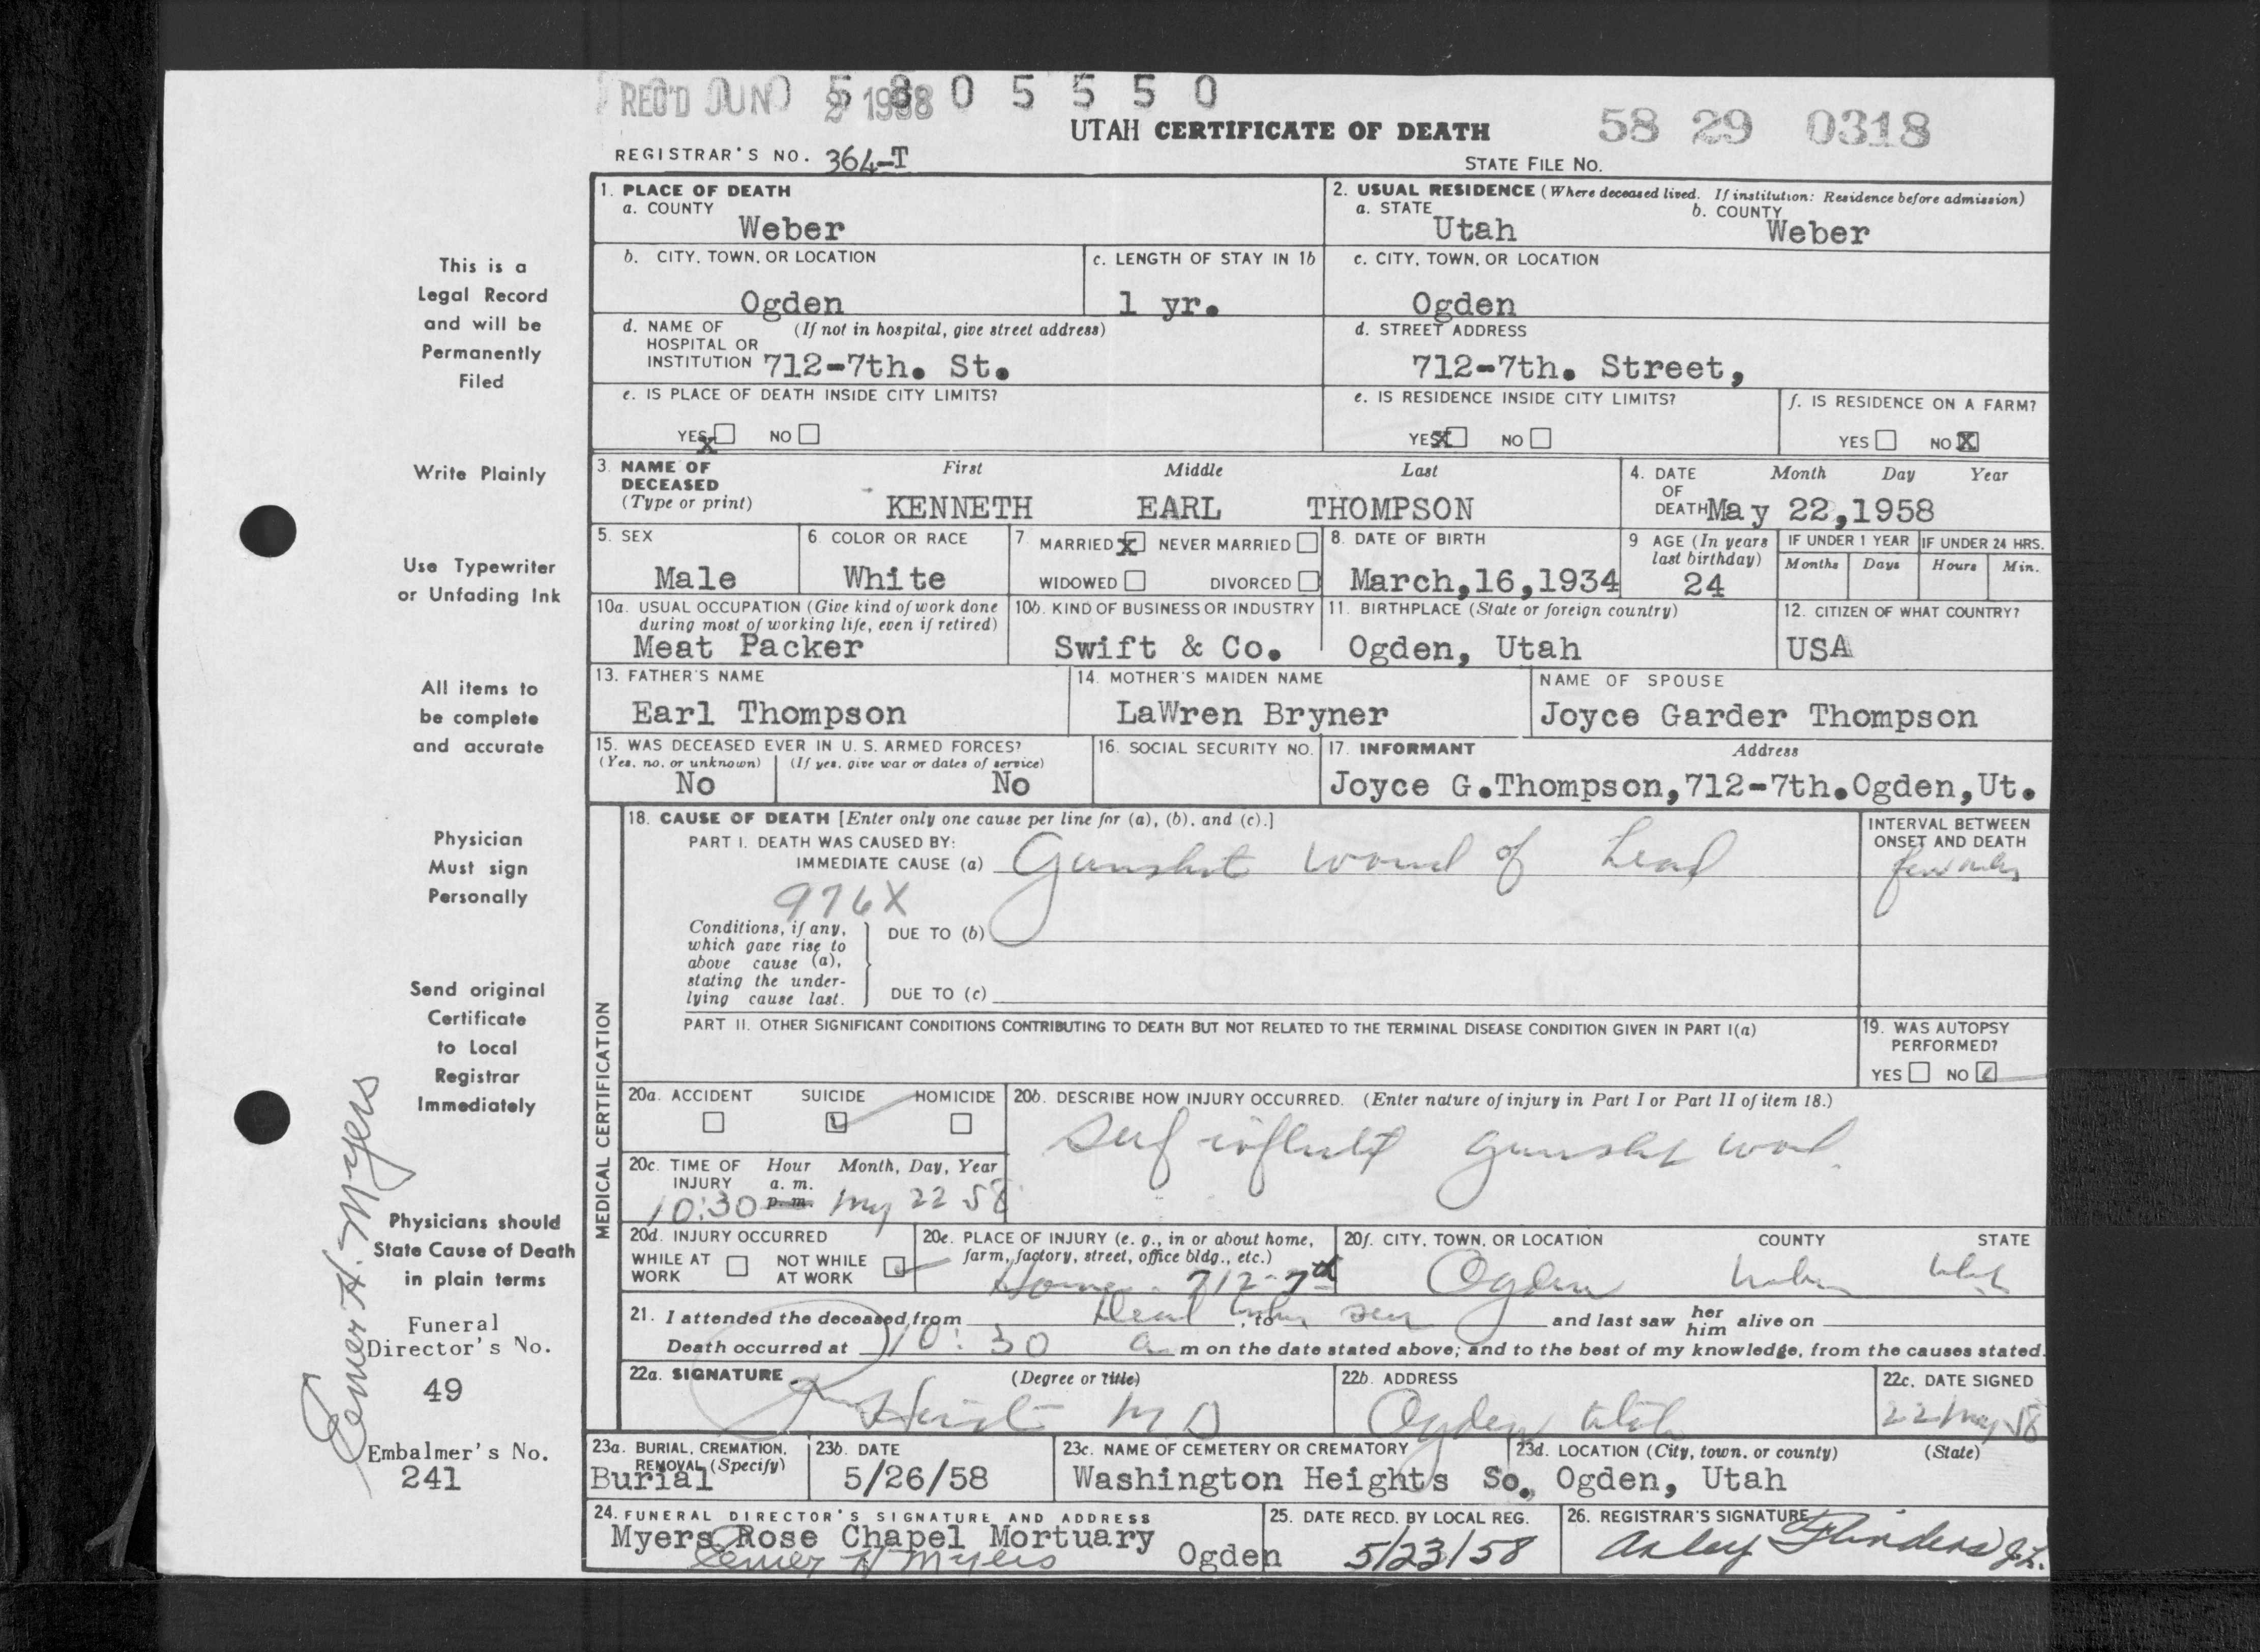 REC'D JUN 2 1958
0 5 8 0 5 5 5 0
UTAH CERTIFICATE OF DEATH
58 29 0318
REGISTRAR'S NO. 364-T
STATE FILE NO.
1. PLACE OF DEATH
a. COUNTY
Weber
2. USUAL RESIDENCE (Where deceased lived. If institution: Residence before admission)
a. STATE
Utah
b. COUNTY
Weber
b. CITY, TOWN, OR LOCATION
Ogden
c. LENGTH OF STAY IN 1b
1 yr.
c. CITY, TOWN, OR LOCATION
Ogden
d. NAME OF (If not in hospital, give street address)
HOSPITAL OR
INSTITUTION 712-7th. St.
d. STREET ADDRESS
712-7th. Street,
e. IS PLACE OF DEATH INSIDE CITY LIMITS?
YES X NO
e. IS RESIDENCE INSIDE CITY LIMITS?
YES X NO
f. IS RESIDENCE ON A FARM?
YES NO X
3. NAME OF
DECEASED
(Type or print)
First Middle Last
KENNETH EARL THOMPSON
4. DATE Month Day Year
OF
DEATH May 22,1958
5. SEX
Male
6. COLOR OR RACE
White
7. MARRIED X NEVER MARRIED
WIDOWED DIVORCED
8. DATE OF BIRTH
March,16,1934
9 AGE (In years
last birthday)
24
IF UNDER 1 YEAR
Months Days
IF UNDER 24 HRS.
Hours Min.
10a. USUAL OCCUPATION (Give kind of work done
during most of working life, even if retired)
Meat Packer
10b. KIND OF BUSINESS OR INDUSTRY
Swift & Co.
11. BIRTHPLACE (State or foreign country)
Ogden, Utah
12. CITIZEN OF WHAT COUNTRY?
USA
13. FATHER'S NAME
Earl Thompson
14. MOTHER'S MAIDEN NAME
LaWren Bryner
NAME OF SPOUSE
Joyce Garder Thompson
15. WAS DECEASED EVER IN U. S. ARMED FORCES?
(Yes, no, or unknown) (If yes, give war or dates of service)
No No
16. SOCIAL SECURITY NO.
17. INFORMANT Address
Joyce G.Thompson,712-7th.Ogden,Ut.
18. CAUSE OF DEATH [Enter only one cause per line for (a), (b), and (c).]
PART I. DEATH WAS CAUSED BY:
IMMEDIATE CAUSE (a) Gunshot wound of head
INTERVAL BETWEEN
ONSET AND DEATH
few min
976X
Conditions, if any,
which gave rise to
above cause (a),
stating the under-
lying cause last.
DUE TO (b)
DUE TO (c)
PART II. OTHER SIGNIFICANT CONDITIONS CONTRIBUTING TO DEATH BUT NOT RELATED TO THE TERMINAL DISEASE CONDITION GIVEN IN PART I(a)
19. WAS AUTOPSY
PERFORMED?
YES NO
MEDICAL CERTIFICATION
20a. ACCIDENT SUICIDE HOMICIDE
20b. DESCRIBE HOW INJURY OCCURRED. (Enter nature of injury in Part I or Part II of item 18.)
Self inflicted gunshot wound
20c. TIME OF Hour Month, Day, Year
INJURY a. m.
10:30 p. m. May 22 58
20d. INJURY OCCURRED
WHILE AT
WORK
NOT WHILE
AT WORK
20e. PLACE OF INJURY (e. g., in or about home,
farm, factory, street, office bldg., etc.)
Home - 712-7th
20f. CITY, TOWN, OR LOCATION COUNTY STATE
Ogden Weber Utah
21. I attended the deceased from Dead when seen, to and last saw her him alive on
Death occurred at 10:30 a m on the date stated above; and to the best of my knowledge, from the causes stated.
22a. SIGNATURE (Degree or title)
M D
22b. ADDRESS
Ogden Utah
22c. DATE SIGNED
22 May 58
23a. BURIAL, CREMATION,
REMOVAL (Specify)
Burial
23b. DATE
5/26/58
23c. NAME OF CEMETERY OR CREMATORY
Washington Heights
23d. LOCATION (City, town, or county) (State)
So. Ogden, Utah
24. FUNERAL DIRECTOR'S SIGNATURE AND ADDRESS
Myers Rose Chapel Mortuary
Elmer H Myers Ogden
25. DATE RECD. BY LOCAL REG.
5/23/58
26. REGISTRAR'S SIGNATURE
Arley Flinders J.L.
This is a
Legal Record
and will be
Permanently
Filed
Write Plainly
Use Typewriter
or Unfading Ink
All items to
be complete
and accurate
Physician
Must sign
Personally
Send original
Certificate
to Local
Registrar
Immediately
Physicians should
State Cause of Death
in plain terms
Funeral
Director's No.
49
Embalmer's No.
241
Elmer H. Myers